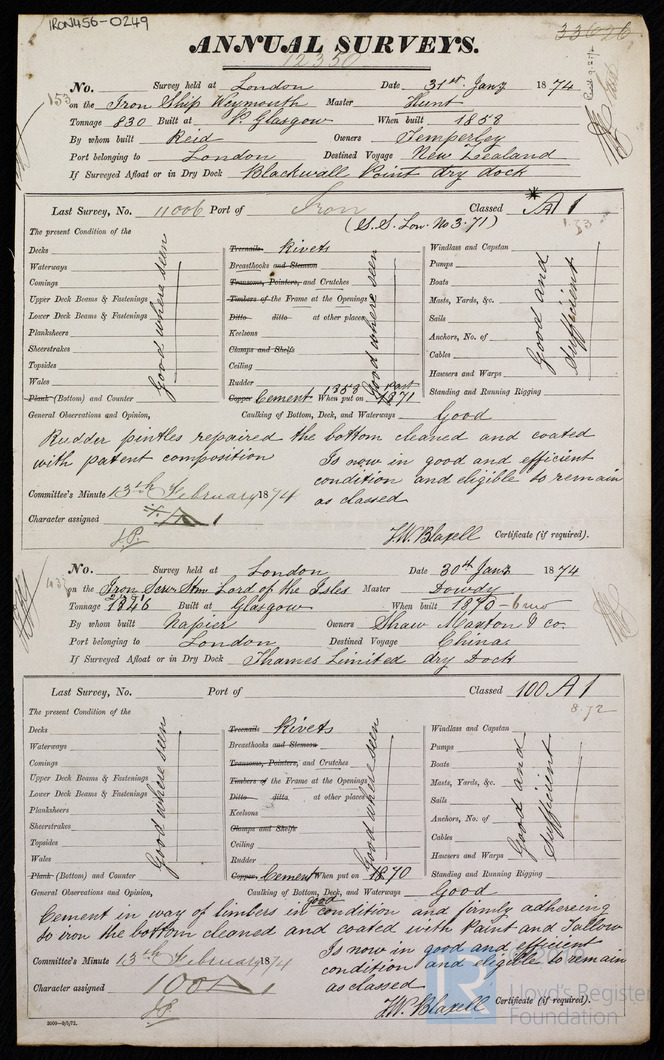 IRON456-0249
33626
ANNUAL SURVEYS.
12350
No. Survey held at London Date 31st Jany 1874
153 on the Iron Ship Weymouth Master Hunt
Tonnage 830 Built at P. Glasgow When built 1858
By whom built Reid Owners Temperley
Port belonging to London Destined Voyage New Zealand
If Surveyed Afloat or in Dry Dock Blackwall Point dry dock
Last Survey, No. 11006 Port of Iron Classed *A1
(S.S. Lon. No 3.71)
The present Condition of the
Decks
Waterways
Comings
Upper Deck Beams & Fastenings
Lower Deck Beams & Fastenings
Planksheers
Sheerstrakes
Topsides
Wales
Plank (Bottom) and Counter
Good where seen
Treenails Rivets
Breasthooks and Stemson
Transoms, Pointers, and Crutches
Timbers of the Frame at the Openings
Ditto ditto at other places
Keelsons
Clamps and Shelfs
Ceiling
Rudder
Copper Cement When put on 1858 part 1871
Good where seen
Windlass and Capstan
Pumps
Boats
Masts, Yards, &c.
Sails
Anchors, No. of
Cables
Hawsers and Warps
Standing and Running Rigging
Good and sufficient
General Observations and Opinion, Caulking of Bottom, Deck, and Waterways Good
Rudder pintles repaired the bottom cleaned and coated
with patent composition Is now in good and efficient
condition and eligible to remain
as classed
Committee's Minute 13th February 1874
Character assigned A1
J.W. Blaxell Certificate (if required).
No. Survey held at London Date 30th Jany 1874
on the Iron Scrw Stmr Lord of the Isles Master Dowdy
Tonnage 1846 Built at Glasgow When built 1870-6mo
By whom built Napier Owners Shaw Maxton & Co.
Port belonging to London Destined Voyage China
If Surveyed Afloat or in Dry Dock Thames Limited dry Dock
Last Survey, No. Port of Classed 100A1
8.72
The present Condition of the
Decks
Waterways
Comings
Upper Deck Beams & Fastenings
Lower Deck Beams & Fastenings
Planksheers
Sheerstrakes
Topsides
Wales
Plank (Bottom) and Counter
Good where seen
Treenails Rivets
Breasthooks and Stemson
Transoms, Pointers, and Crutches
Timbers of the Frame at the Openings
Ditto ditto at other places
Keelsons
Clamps and Shelfs
Ceiling
Rudder
Copper Cement When put on 1870
Good where seen
Windlass and Capstan
Pumps
Boats
Masts, Yards, &c.
Sails
Anchors, No. of
Cables
Hawsers and Warps
Standing and Running Rigging
Good and sufficient
General Observations and Opinion, Caulking of Bottom, Deck, and Waterways Good
Cement in way of limbers in good condition and firmly adhereing
to iron the bottom cleaned and coated with Paint and Tallow
Is now in good and efficient
condition and eligible to remain
as classed
Committee's Minute 13th February 1874
Character assigned 100A1
J.W. Blaxell Certificate (if required).
2000—9/5/72.
Lloyd's Register
Foundation